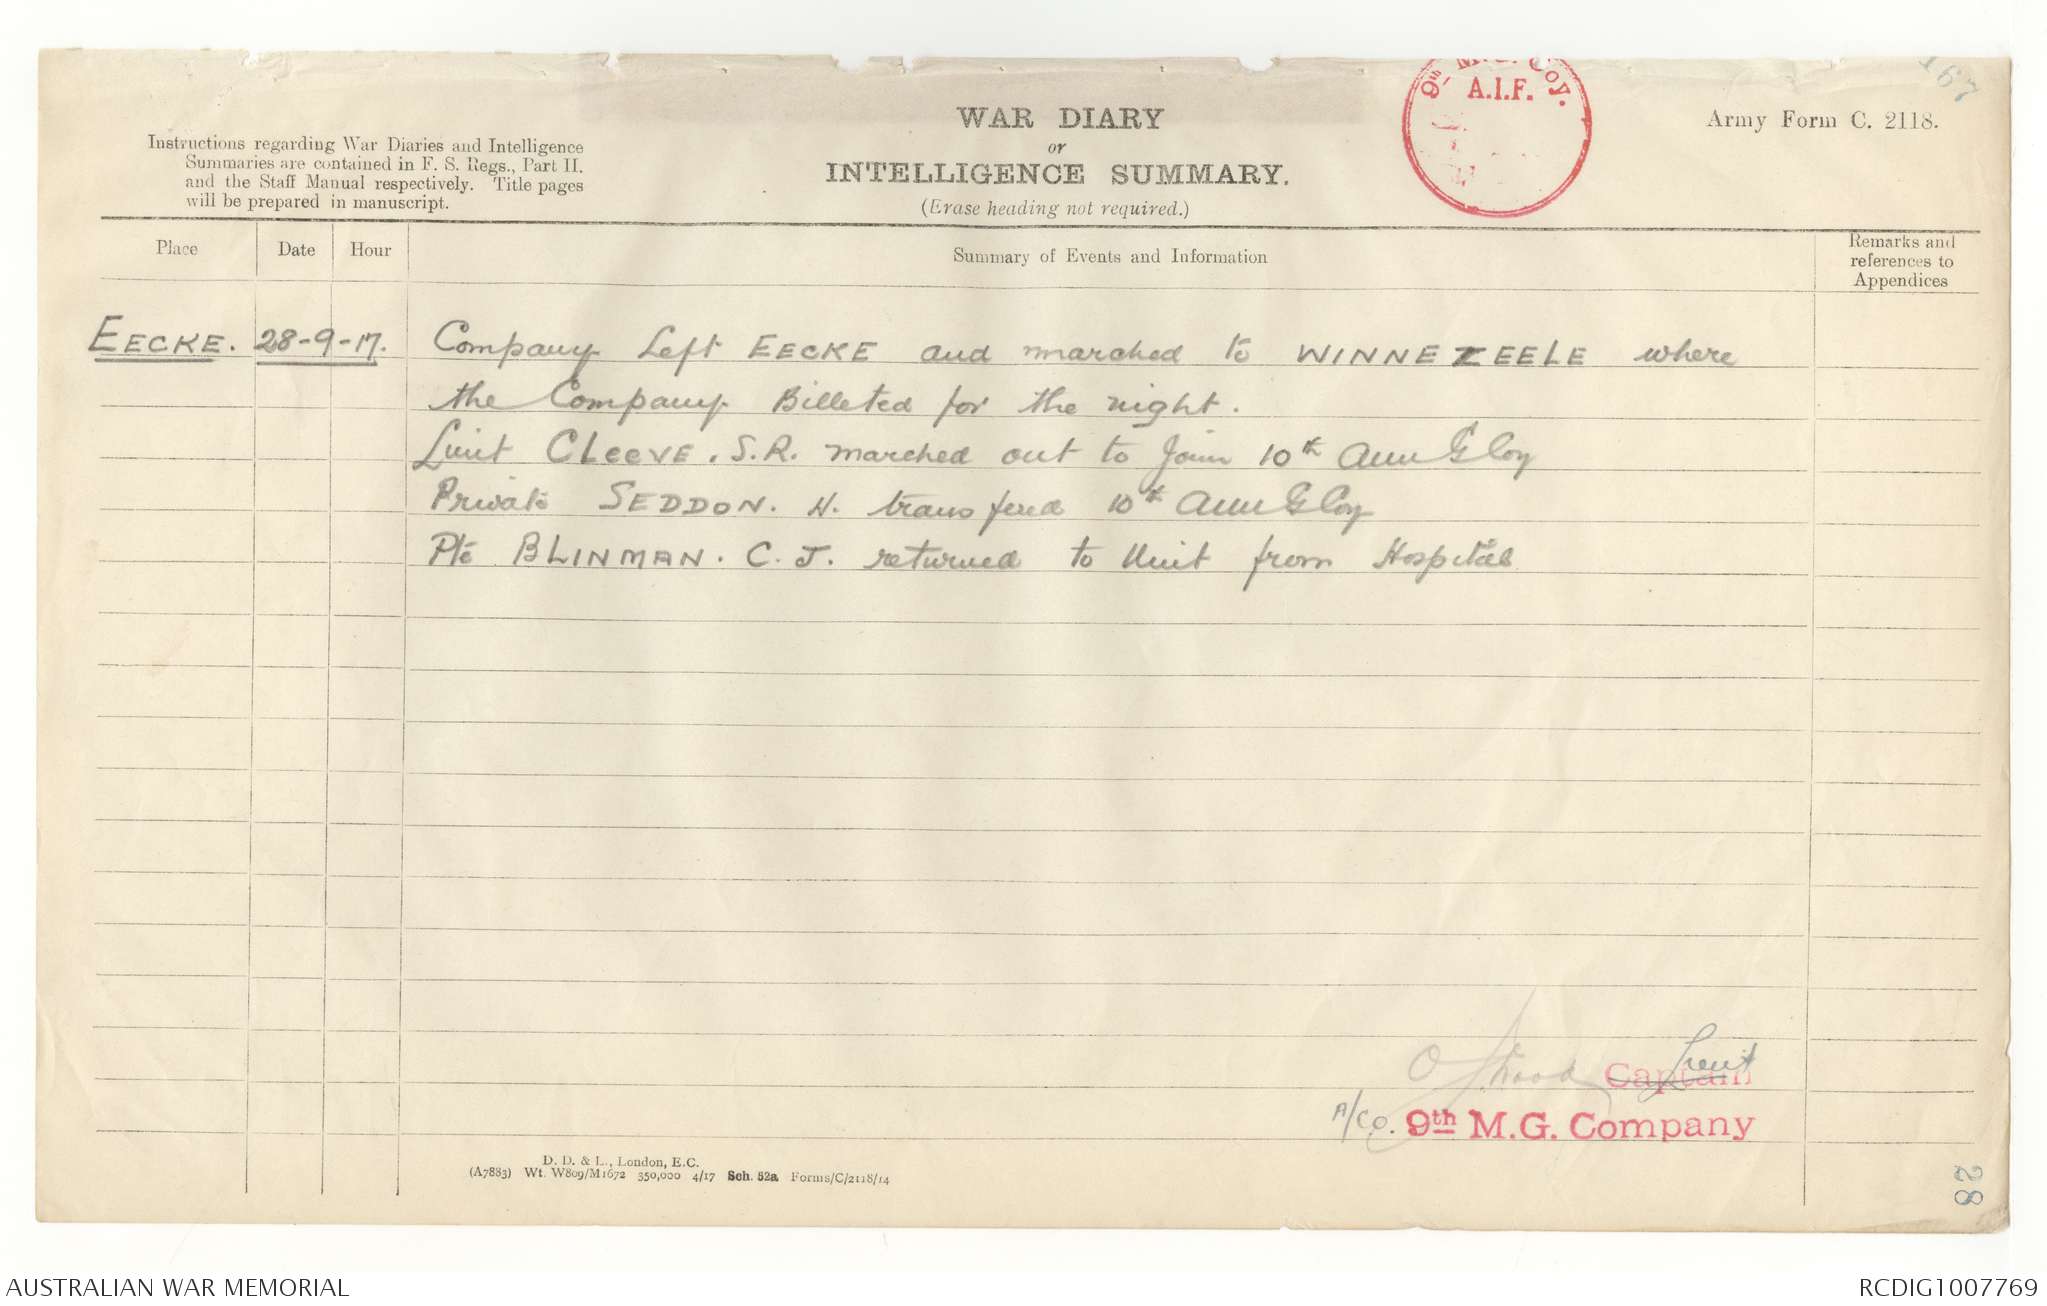 167
9th M.G. Coy.
A.I.F.
Army Form C. 2118.
WAR DIARY
or
INTELLIGENCE SUMMARY.
(Erase heading not required.)
Instructions regarding War Diaries and Intelligence
Summaries are contained in F. S. Regs., Part II.
and the Staff Manual respectively. Title pages
will be prepared in manuscript.
Place Date Hour Summary of Events and Information Remarks and
references to
Appendices
EECKE. 28-9-17. Company Left EECKE and marched to WINNEZEELE where
the Company Billeted for the night.
Lieut CLEEVE. S.R. marched out to Join 10th Aus M G Coy
Private SEDDON. H. transfered 10th Aus M G Coy
Pte BLINMAN. C. J. returned to Unit from Hospital
Captain Lieut
A/CO. 9th M.G. Company
D. D. & L., London, E.C.
(A7883) Wt. W809/M1672 350,000 4/17 Sch. 52a Forms/C/2118/14
28
AUSTRALIAN WAR MEMORIAL
RCDIG1007769